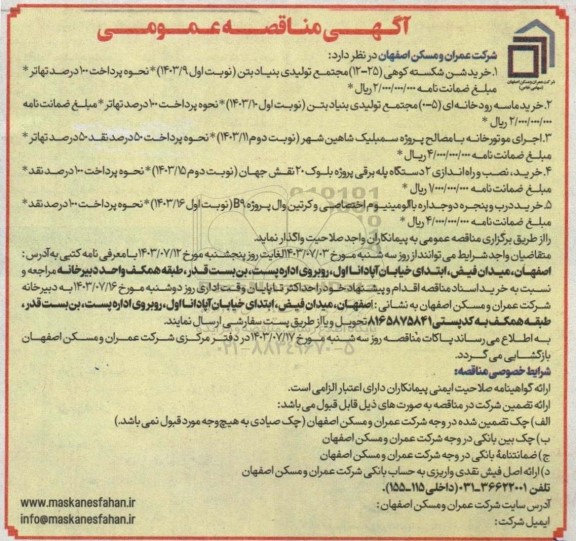 آگهی مناقصه عمومی
شرکت عمران و مسکن اصفهان
(سهامی خاص)
شرکت عمران و مسکن اصفهان در نظر دارد:
۱. خرید شن شکسته کوهی (۲۵-۱۲) مجتمع تولیدی بنیاد بتن (نوبت اول ۱۴۰۳/۹) * نحوه پرداخت ۱۰۰ درصد تهاتر *
مبلغ ضمانت نامه ۲/۰۰۰/۰۰۰/۰۰۰ ریال *
۲. خرید ماسه رودخانه ای (۵-۰) مجتمع تولیدی بنیاد بتن (نوبت اول ۱۴۰۳/۱۰) * نحوه پرداخت ۱۰۰ درصد تهاتر * مبلغ ضمانت نامه
۲/۰۰۰/۰۰۰/۰۰۰ ریال *
۳. اجرای موتورخانه با مصالح پروژه سمبلیک شاهین شهر (نوبت دوم ۱۴۰۳/۱۱) * نحوه پرداخت ۵۰ درصد نقد ۵۰ درصد تهاتر *
مبلغ ضمانت نامه ۴/۰۰۰/۰۰۰/۰۰۰ ریال *
۴. خرید، نصب و راه اندازی ۲ دستگاه پله برقی پروژه بلوک ۲۰ نقش جهان (نوبت دوم ۱۴۰۳/۱۵) * نحوه پرداخت ۱۰۰ درصد نقد *
مبلغ ضمانت نامه ۷/۰۰۰/۰۰۰/۰۰۰ ریال *
۵. خرید درب و پنجره دوجداره با آلومینیوم اختصاصی و کرتین وال پروژه B9 (نوبت اول ۱۴۰۳/۱۶) * نحوه پرداخت ۱۰۰ درصد نقد *
مبلغ ضمانت نامه ۴/۰۰۰/۰۰۰/۰۰۰ ریال *
را از طریق برگزاری مناقصه عمومی به پیمانکاران واجد صلاحیت واگذار نماید.
متقاضیان واجد شرایط می توانند از روز سه شنبه مورخ ۱۴۰۳/۰۷/۰۳ لغایت روز پنجشنبه مورخ ۱۴۰۳/۰۷/۱۲ با معرفی نامه کتبی به آدرس:
اصفهان، میدان فیض، ابتدای خیابان آپادانا اول، روبروی اداره پست، بن بست قدر، طبقه همکف واحد دبیرخانه مراجعه و
نسبت به خرید اسناد مناقصه اقدام و پیشنهاد خود را حداکثر تا پایان وقت اداری روز دوشنبه مورخ ۱۴۰۳/۰۷/۱۶ به دبیرخانه
شرکت عمران و مسکن اصفهان به نشانی: اصفهان، میدان فیض، ابتدای خیابان آپادانا اول، روبروی اداره پست، بن بست قدر،
طبقه همکف به کدپستی ۸۱۶۵۸۷۵۸۴۱ تحویل و یا از طریق پست سفارشی ارسال نمایند.
به اطلاع می رساند پاکات مناقصه روز سه شنبه مورخ ۱۴۰۳/۰۷/۱۷ در دفتر مرکزی شرکت عمران و مسکن اصفهان
بازگشایی می گردد.
شرایط خصوصی مناقصه:
ارائه گواهینامه صلاحیت ایمنی پیمانکاران دارای اعتبار الزامی است.
ارائه تضمین شرکت در مناقصه به صورت های ذیل قابل قبول می باشد:
الف) چک تضمین شده در وجه شرکت عمران و مسکن اصفهان (چک صیادی به هیچ وجه مورد قبول نمی باشد.)
ب) چک بین بانکی در وجه شرکت عمران و مسکن اصفهان
ج) ضمانتنامۀ بانکی در وجه شرکت عمران و مسکن اصفهان
د) ارائه اصل فیش نقدی واریزی به حساب بانکی شرکت عمران و مسکن اصفهان
تلفن ۳۶۶۲۲۰۰۱-۰۳۱ (داخلی ۱۱۵-۱۵۵).
آدرس سایت شرکت عمران و مسکن اصفهان: www.maskanesfahan.ir
ایمیل شرکت: info@maskanesfahan.ir
۰۲۱-۸۸۳۴۹۶۷۰-۵